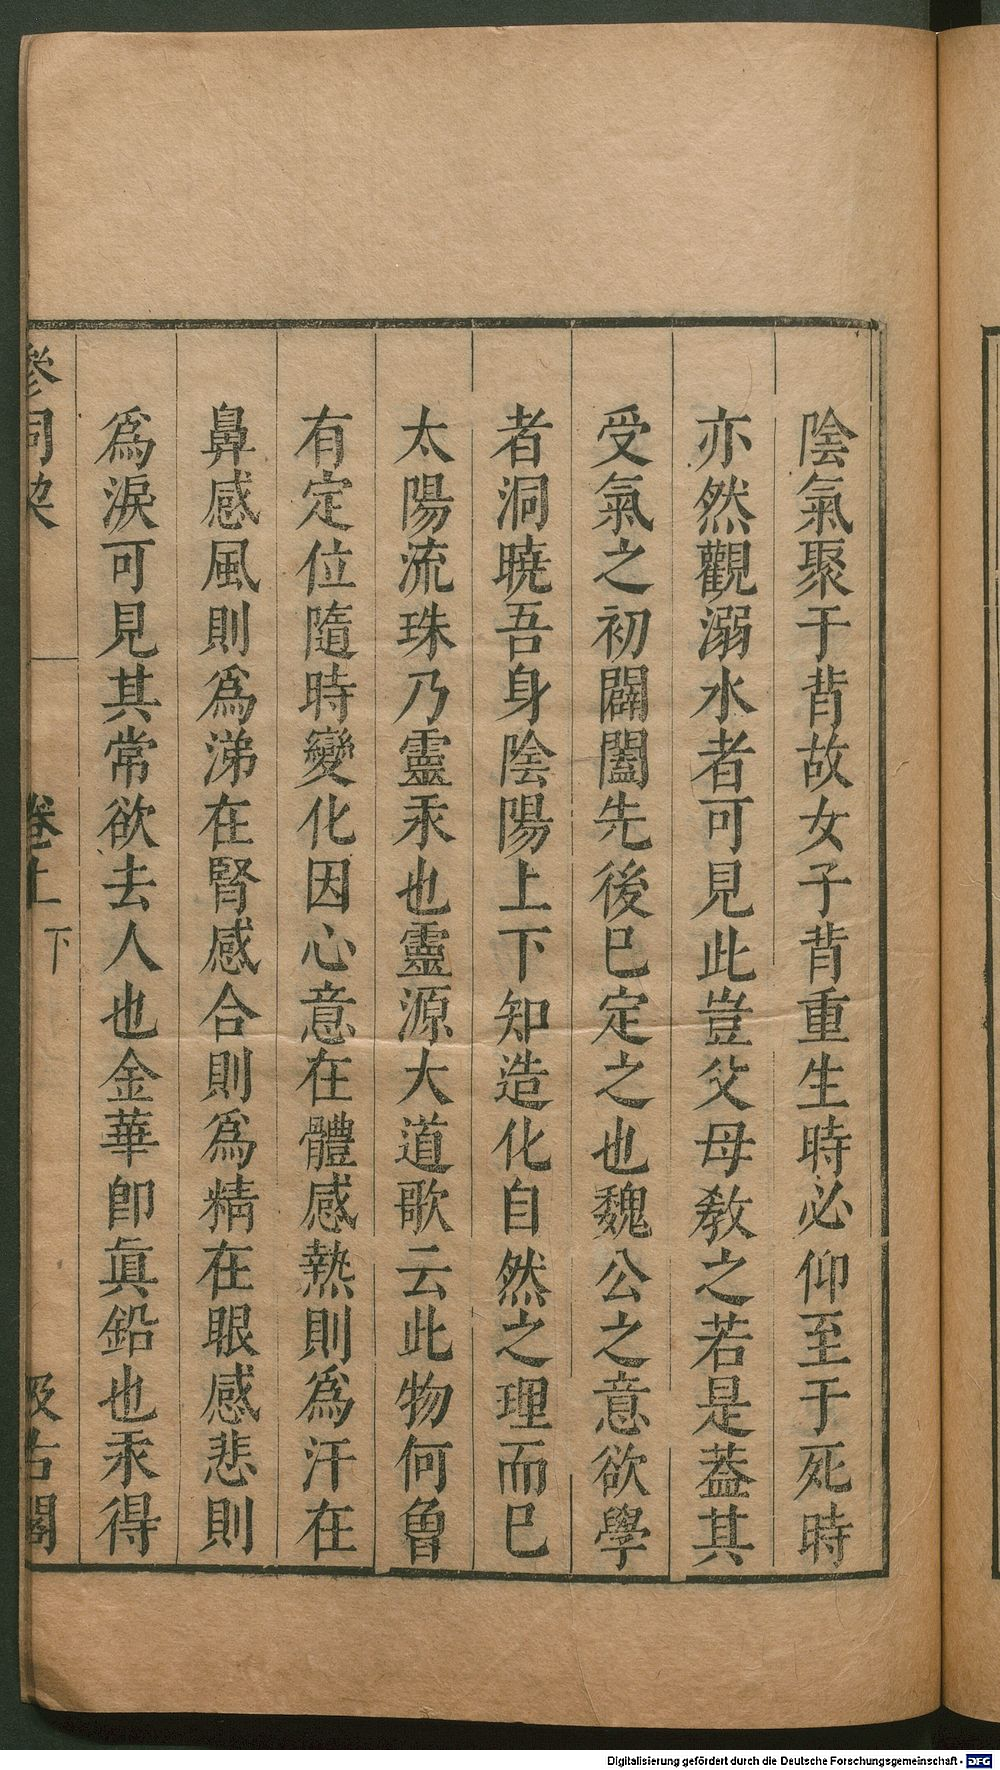 陰氣聚于背故女子背重生時必仰至于死時
亦然觀溺水者可見此豈父母教之若是蓋其
受氣之初闢闔先後已定之也魏公之意欲學
者洞曉吾身陰陽上下知造化自然之理而已
太陽流珠乃靈汞也靈源大道歌云此物何曾
有定位隨時變化因心意在體感熱則爲汗在
鼻感風則爲涕在腎感合則爲精在眼感悲則
爲淚可見其常欲去人也金華卽眞鉛也汞得
參同契 卷上下 汲古閣
Digitalisierung gefördert durch die Deutsche Forschungsgemeinschaft - DFG